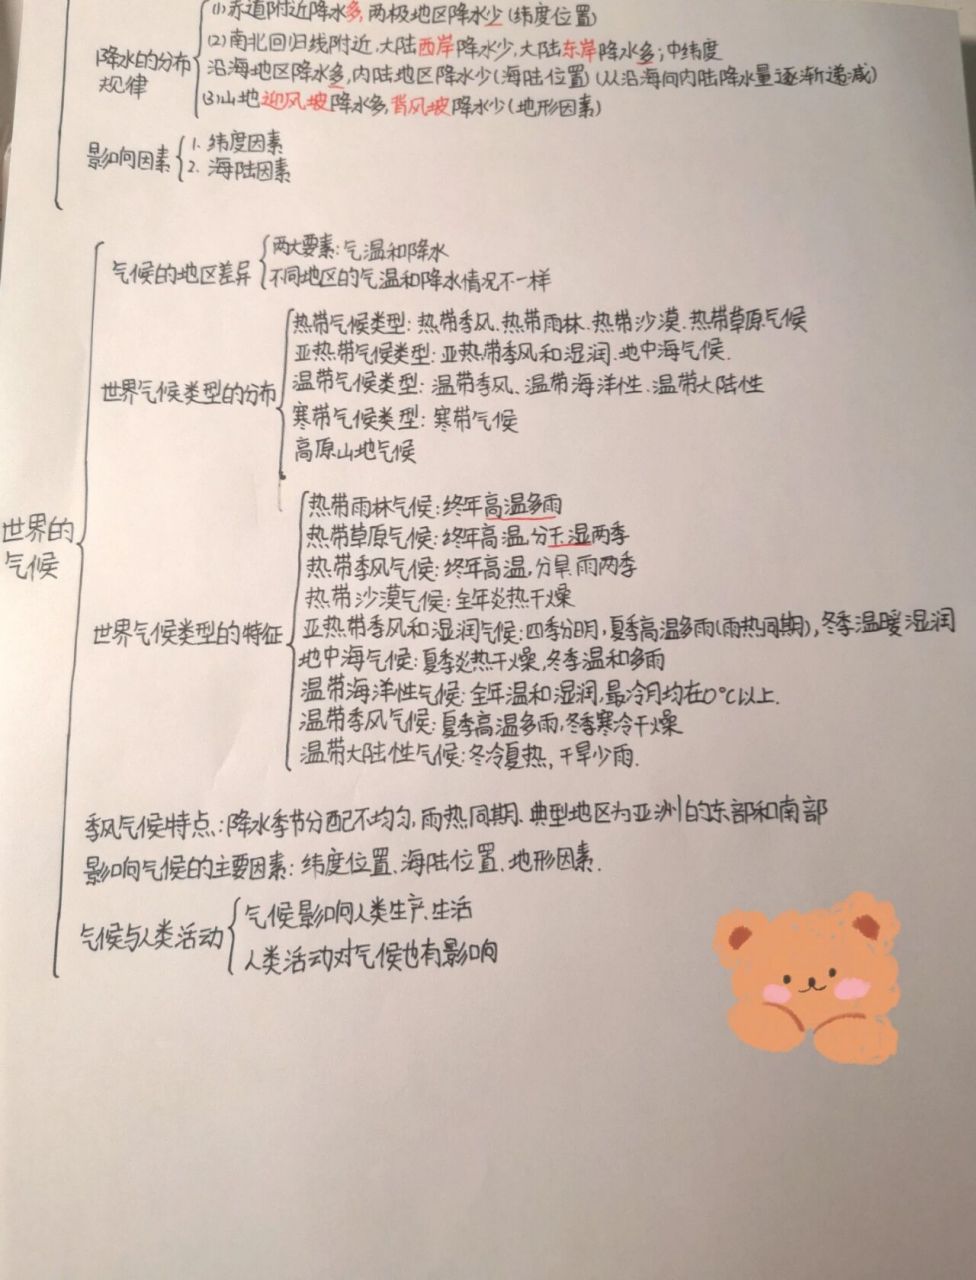 (1)赤道附近降水多,两极地区降水少(纬度位置)
(2)南北回归线附近,大陆西岸降水少,大陆东岸降水多;中纬度
降水的分布规律
沿海地区降水多,内陆地区降水少(海陆位置)(从沿海向内陆降水量逐渐递减)
(3)山地迎风坡降水多,背风坡降水少(地形因素)
影响因素
1. 纬度因素
2. 海陆因素
世界的气候
气候的地区差异
两大要素:气温和降水
不同地区的气温和降水情况不一样
世界气候类型的分布
热带气候类型:热带季风、热带雨林、热带沙漠、热带草原气候
亚热带气候类型:亚热带季风和湿润、地中海气候.
温带气候类型:温带季风、温带海洋性、温带大陆性
寒带气候类型:寒带气候
高原山地气候
世界气候类型的特征
热带雨林气候:终年高温多雨
热带草原气候:终年高温,分干湿两季
热带季风气候:终年高温,分旱雨两季
热带沙漠气候:全年炎热干燥
亚热带季风和湿润气候:四季分明,夏季高温多雨(雨热同期),冬季温暖湿润
地中海气候:夏季炎热干燥,冬季温和多雨
温带海洋性气候:全年温和湿润,最冷月均在0°C以上.
温带季风气候:夏季高温多雨,冬季寒冷干燥
温带大陆性气候:冬冷夏热,干旱少雨.
季风气候特点:降水季节分配不均匀,雨热同期、典型地区为亚洲的东部和南部
影响气候的主要因素:纬度位置、海陆位置、地形因素.
气候与人类活动
气候影响人类生产、生活
人类活动对气候也有影响